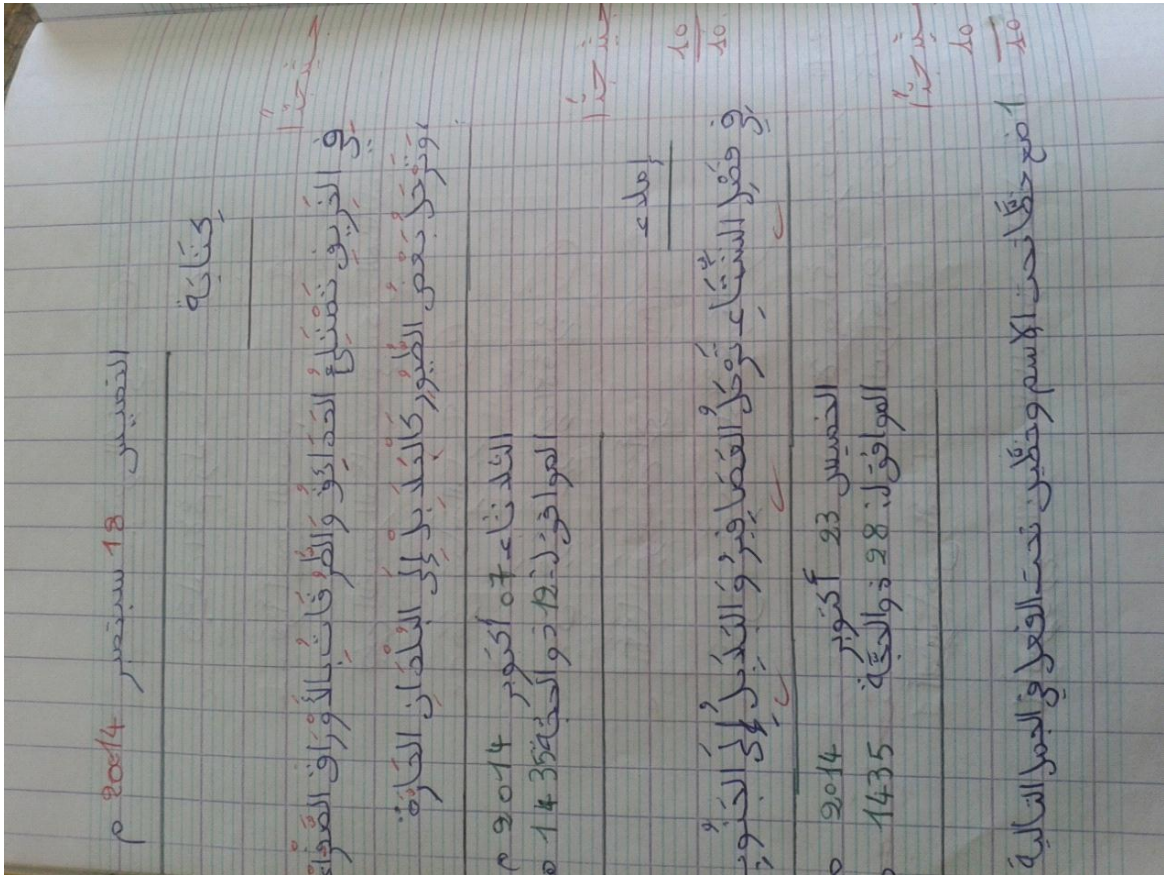 الخميس 18 سبتمبر 2014 م
كتابة
جيد جدًا
في الخريف تمتلئ الحدائق والطرقات بالأوراق الصفراء
وترحل بعض الطيور إلى البلدان الحارة
الثلاثاء 07 أكتوبر 2014 م
الموافق لـ: 12 ذو الحجة 1435 ه
جيد جدًا
10
10
إملاء
في فصل الشتاء ترحل العصافير والبلابل إلى الجنوب
الخميس 23 أكتوبر 2014
الموافق لـ: 28 ذو الحجة 1435
جيد جدًا
10
10
1 ضع خطًا تحت الاسم وخطين تحت الفعل في الجمل التالية